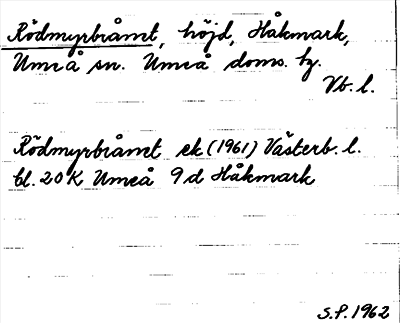 Rödmyrbråmt, höjd, Håkmark,
Umeå sn. Umeå doms. hg.
Vb. l.
Rödmyrbråmt ek (1961) Västerb. l.
bl. 20 K Umeå 9 d Håkmark
S.P. 1962